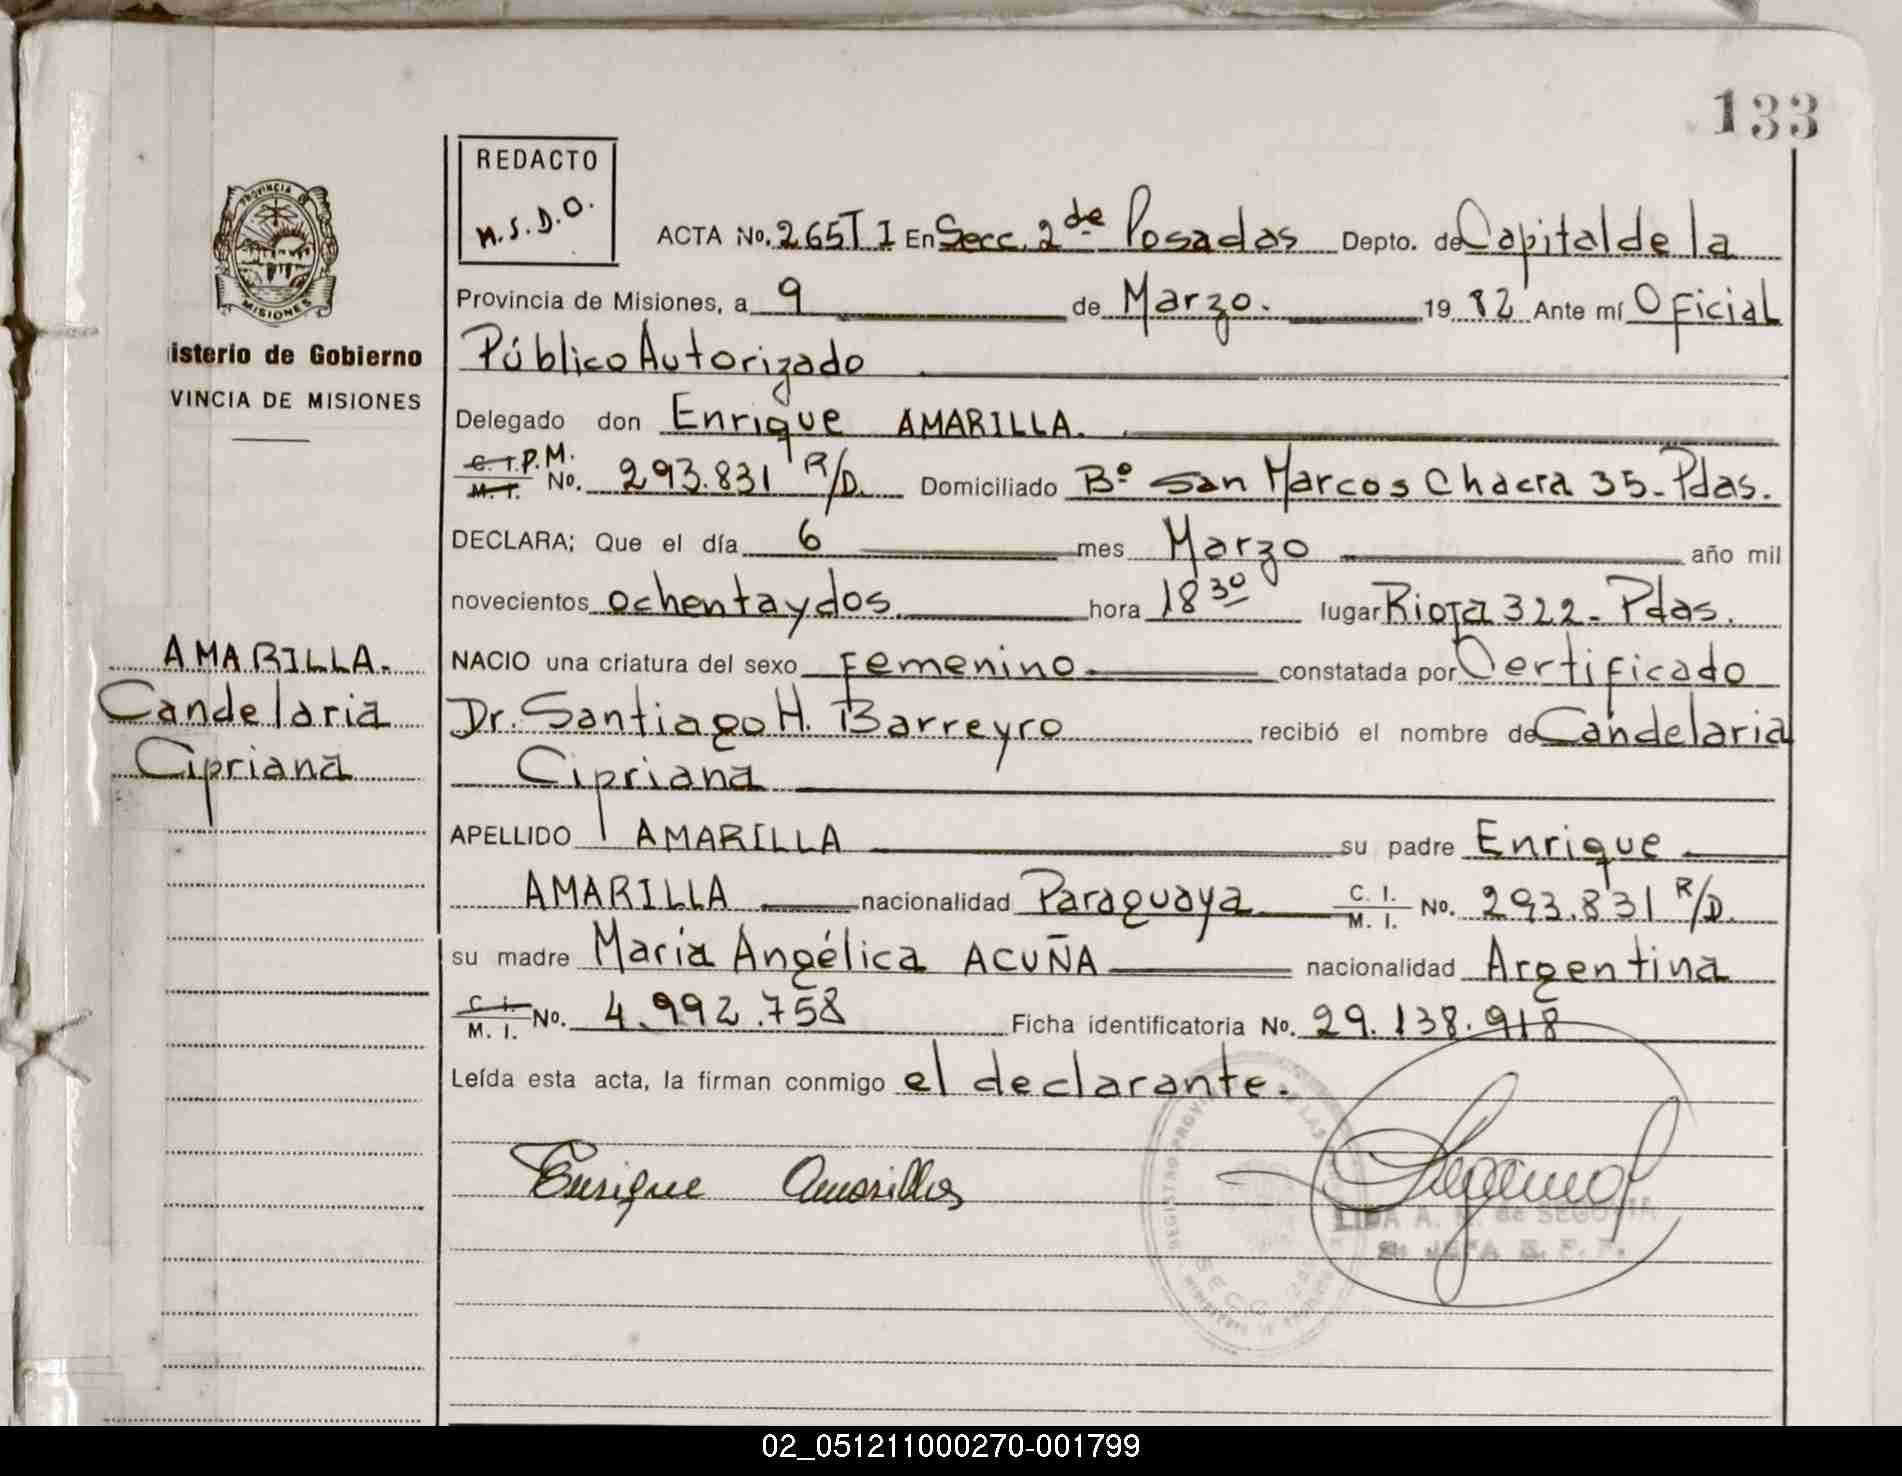 133
REDACTO
M.S.D.O.
PROVINCIA D
MISIONES
isterio de Gobierno
VINCIA DE MISIONES
ACTA No. 265 T I En Secc. 2de Posadas Depto. de Capital de la
Provincia de Misiones, a 9 de Marzo. 19 82 Ante mí Oficial
Público Autorizado
Delegado don Enrique AMARILLA.
C. I. P.M.
M. I. No. 293.831 R/D. Domiciliado Bº San Marcos Chacra 35 - Pdas.
DECLARA; Que el día 6 mes Marzo año mil
novecientos ochenta y dos. hora 18 30 lugar Rioja 322 - Pdas.
NACIO una criatura del sexo Femenino constatada por Certificado
Dr. Santiago H. Barreyro recibió el nombre de Candelaria
Cipriana
APELLIDO AMARILLA su padre Enrique
AMARILLA nacionalidad Paraguaya C. I. M. I. No. 293.831 R/D.
su madre María Angélica ACUÑA nacionalidad Argentina
C. I. M. I. No. 4.992.758 Ficha identificatoria No. 29.138.918
Leída esta acta, la firman conmigo el declarante.
Enrique Amarilla
AMARILLA.
Candelaria
Cipriana
REGISTRO PROV DE LAS
SECC. 2da
A. de SEGOVIA
JEFA
02_051211000270-001799